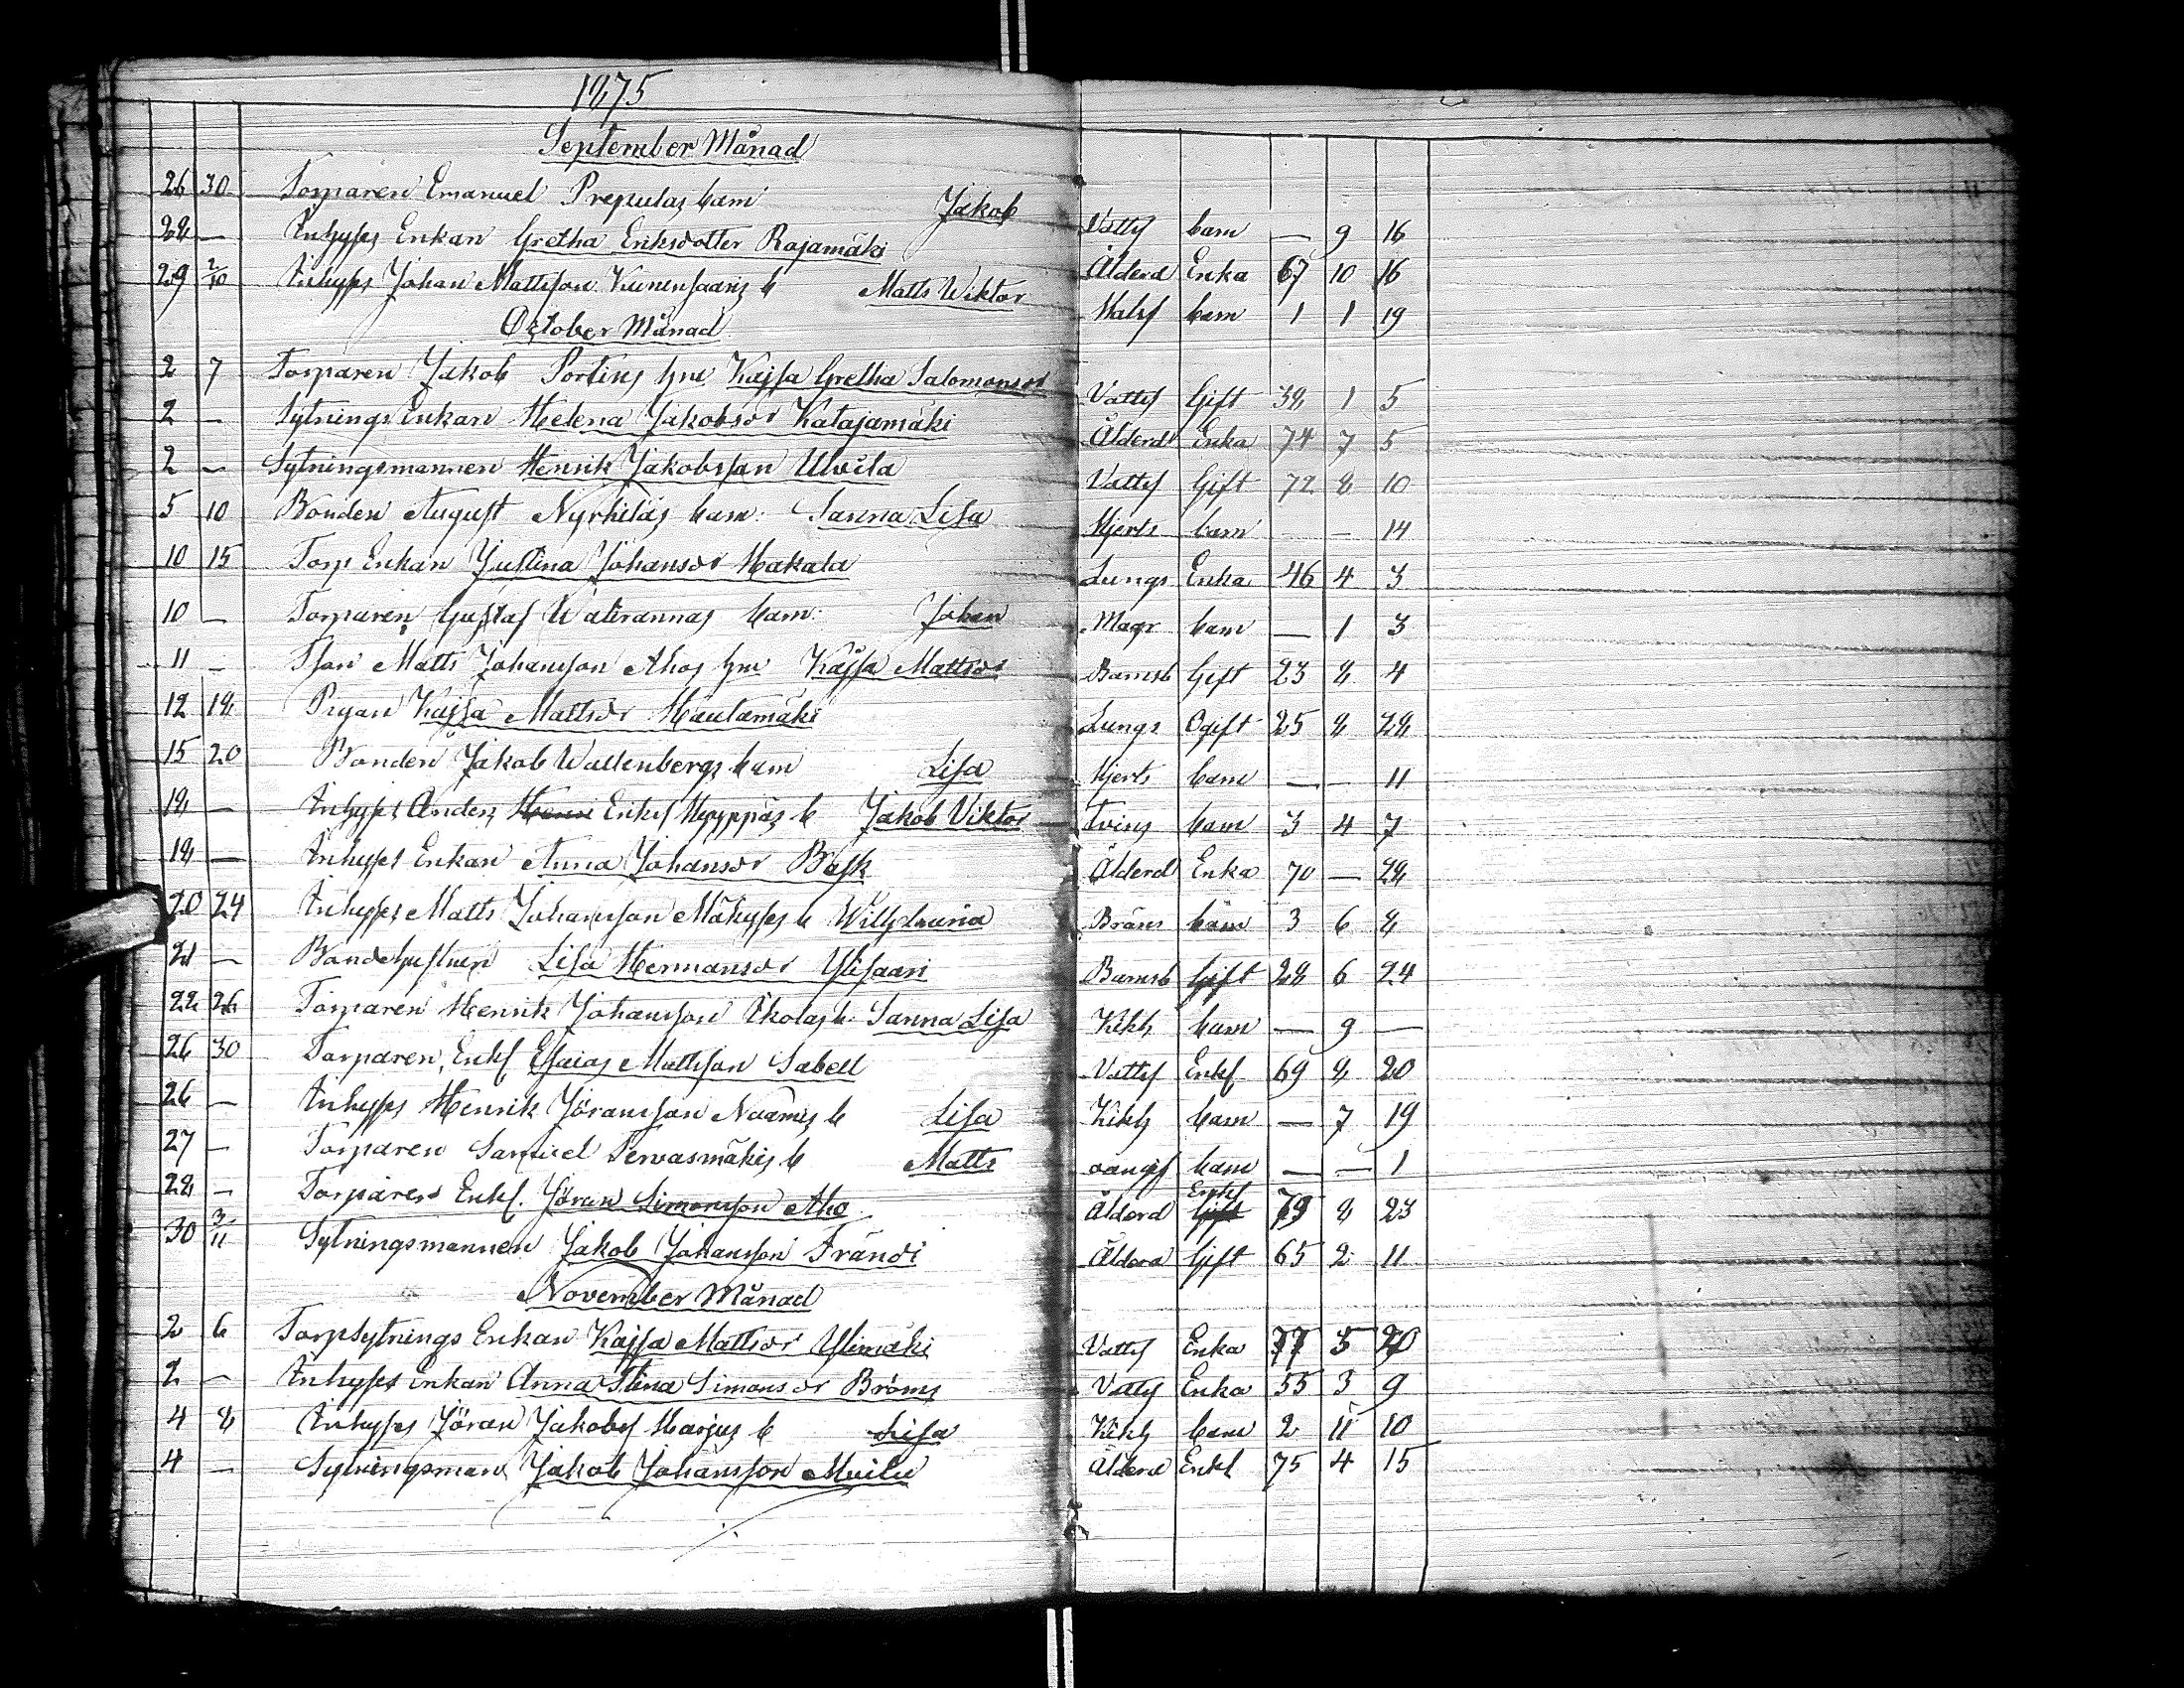 1875
September Månad
26 30 Torparen Emanuel Prepulas barn Jakob Vattsj barn — 9 16
28 — Inhyses Enkan Gretha Eriksdotter Rajamäki Ålderd Enka 67 10 16
29 2/10 Inhyses Johan Mattsson b Matts Wiktor Halsf barn 1 1 19
October Månad
2 7 Torparen Jakob Portins hru Kajsa Gretha Salomonsdr Vattsf Gift 38 1 5
2 — Sytnings Enkan Helena Jakobsdr Katajamäki Ålderd Enka 74 7 5
2 — Sytningsmannen Henrik Jakobsson Ulvila Vattsf Gift 72 8 10
5 10 Bonden August Nyrhiläs barn: Sanna Lisa Hjerts barn — — 14
10 15 Torp Enkan Justina Johansdr Hakala Lungs Enka 46 4 3
10 — Torparen Gustaf barn: Johan Magr barn — 1 3
11 — Tson Matts Johansson Ahos hru Kajsa Mattsdr Barnsb Gift 23 8 4
12 18 Pigan Kajsa Mattsdr Hautamäki Lungs Ogift 25 8 28
15 20 Bonden Jakob Wallenbergs barn Lisa Hjerts barn — — 11
18 — Inhyses Anders Eriksf b Jakob Viktor Tvins barn 3 4 7
18 — Inhyses Enkan Anna Johansdr Bask Ålderd Enka 70 — 28
20 24 Inhyses Matts Johansson b Bråns barn 3 6 8
21 — Bondehustrun Lisa Hermansdr Ylisaari Barnsb Gift 28 6 24
22 26 Torparen Henrik Johansson b. Sanna Lisa Kikh barn — 9 —
26 30 Torparen, Enkl Esaias Mattsson Sabell Vattsf Enkl 69 8 20
26 — Inhyses Henrik Jöransson b Lisa Kikh barn — 7 19
27 — Torparen Samuel Pervasmäkis b Matts oangif barn — — 1
28 — Torparen Enkl. Jöran Simonsson Aho Ålderd Enkl 79 8 23
30 3/11 Sytningsmannen Jakob Johansson Frändi Ålderd Gift 65 2 11
November Månad
2 6 Torpsytnings Enkan Kajsa Mattsdr Ylimäki Vattsj Enka 77 5 20
2 — Inhyses Enkan Anna Stina Simonsdr Broms Vattsj Enka 55 3 9
4 8 Inhyses Jöran Jakobsf Harjus b Lisa Kikh barn 2 11 10
4 — Sytningsman Jakob Johansson Muilu Ålderd Enkl 75 4 15